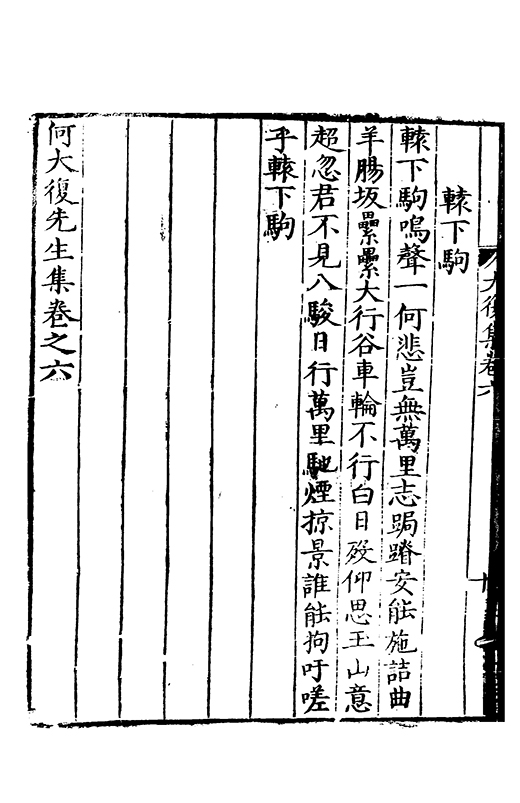 大復集卷六
轅下駒
轅下駒鳴聲一何悲豈無萬里志跼蹐安能施詰曲
羊腸坂纍纍大行谷車輪不行白日歿仰思玉山意
超忽君不見八駿日行萬里馳煙掠景誰能拘吁嗟
乎轅下駒
何大復先生集卷之六